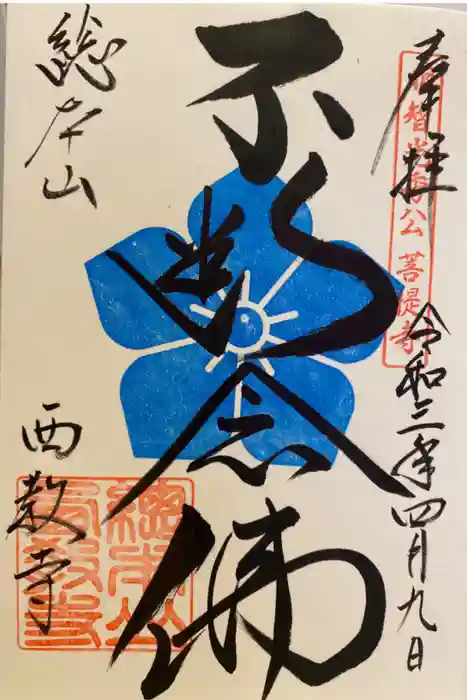 奉拝
明智光秀公 菩提寺
令和三年四月九日
不断念佛
総本山
西教寺
總本山
西教寺